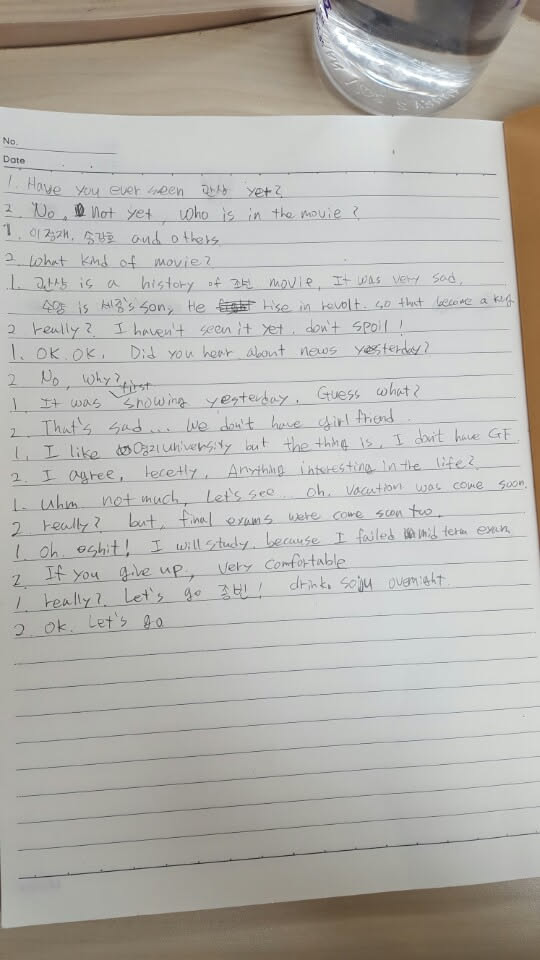 No.
Date
1. Have you ever seen 관상 yet?
2. No, not yet, who is in the movie?
1. 이정재, 송강호 and others
2. what kind of movie?
1. 관상 is a history of 조선 movie, It was very sad,
수양 is 세종's son, He rise in revolt. so that become a king
2 really? I haven't seen it yet, don't spoil!
1. OK, OK, Did you hear about news yesterday?
2 No, why?
1. It was first snowing yesterday. Guess what?
2. That's sad... We don't have girl friend.
1. I like university but the thing is, I don't have GF.
2. I agree, recetly, Anything interesting in the life?
1. Uhm not much, Let's see.. oh. vacation was come soon.
2 really? but, final exams were come soon two.
1 Oh. shit! I will study. because I failed mid term exam.
2. If you give up, very comfortable
1. really? Let's go 종빈! drink soju overnight.
2. OK. Let's go